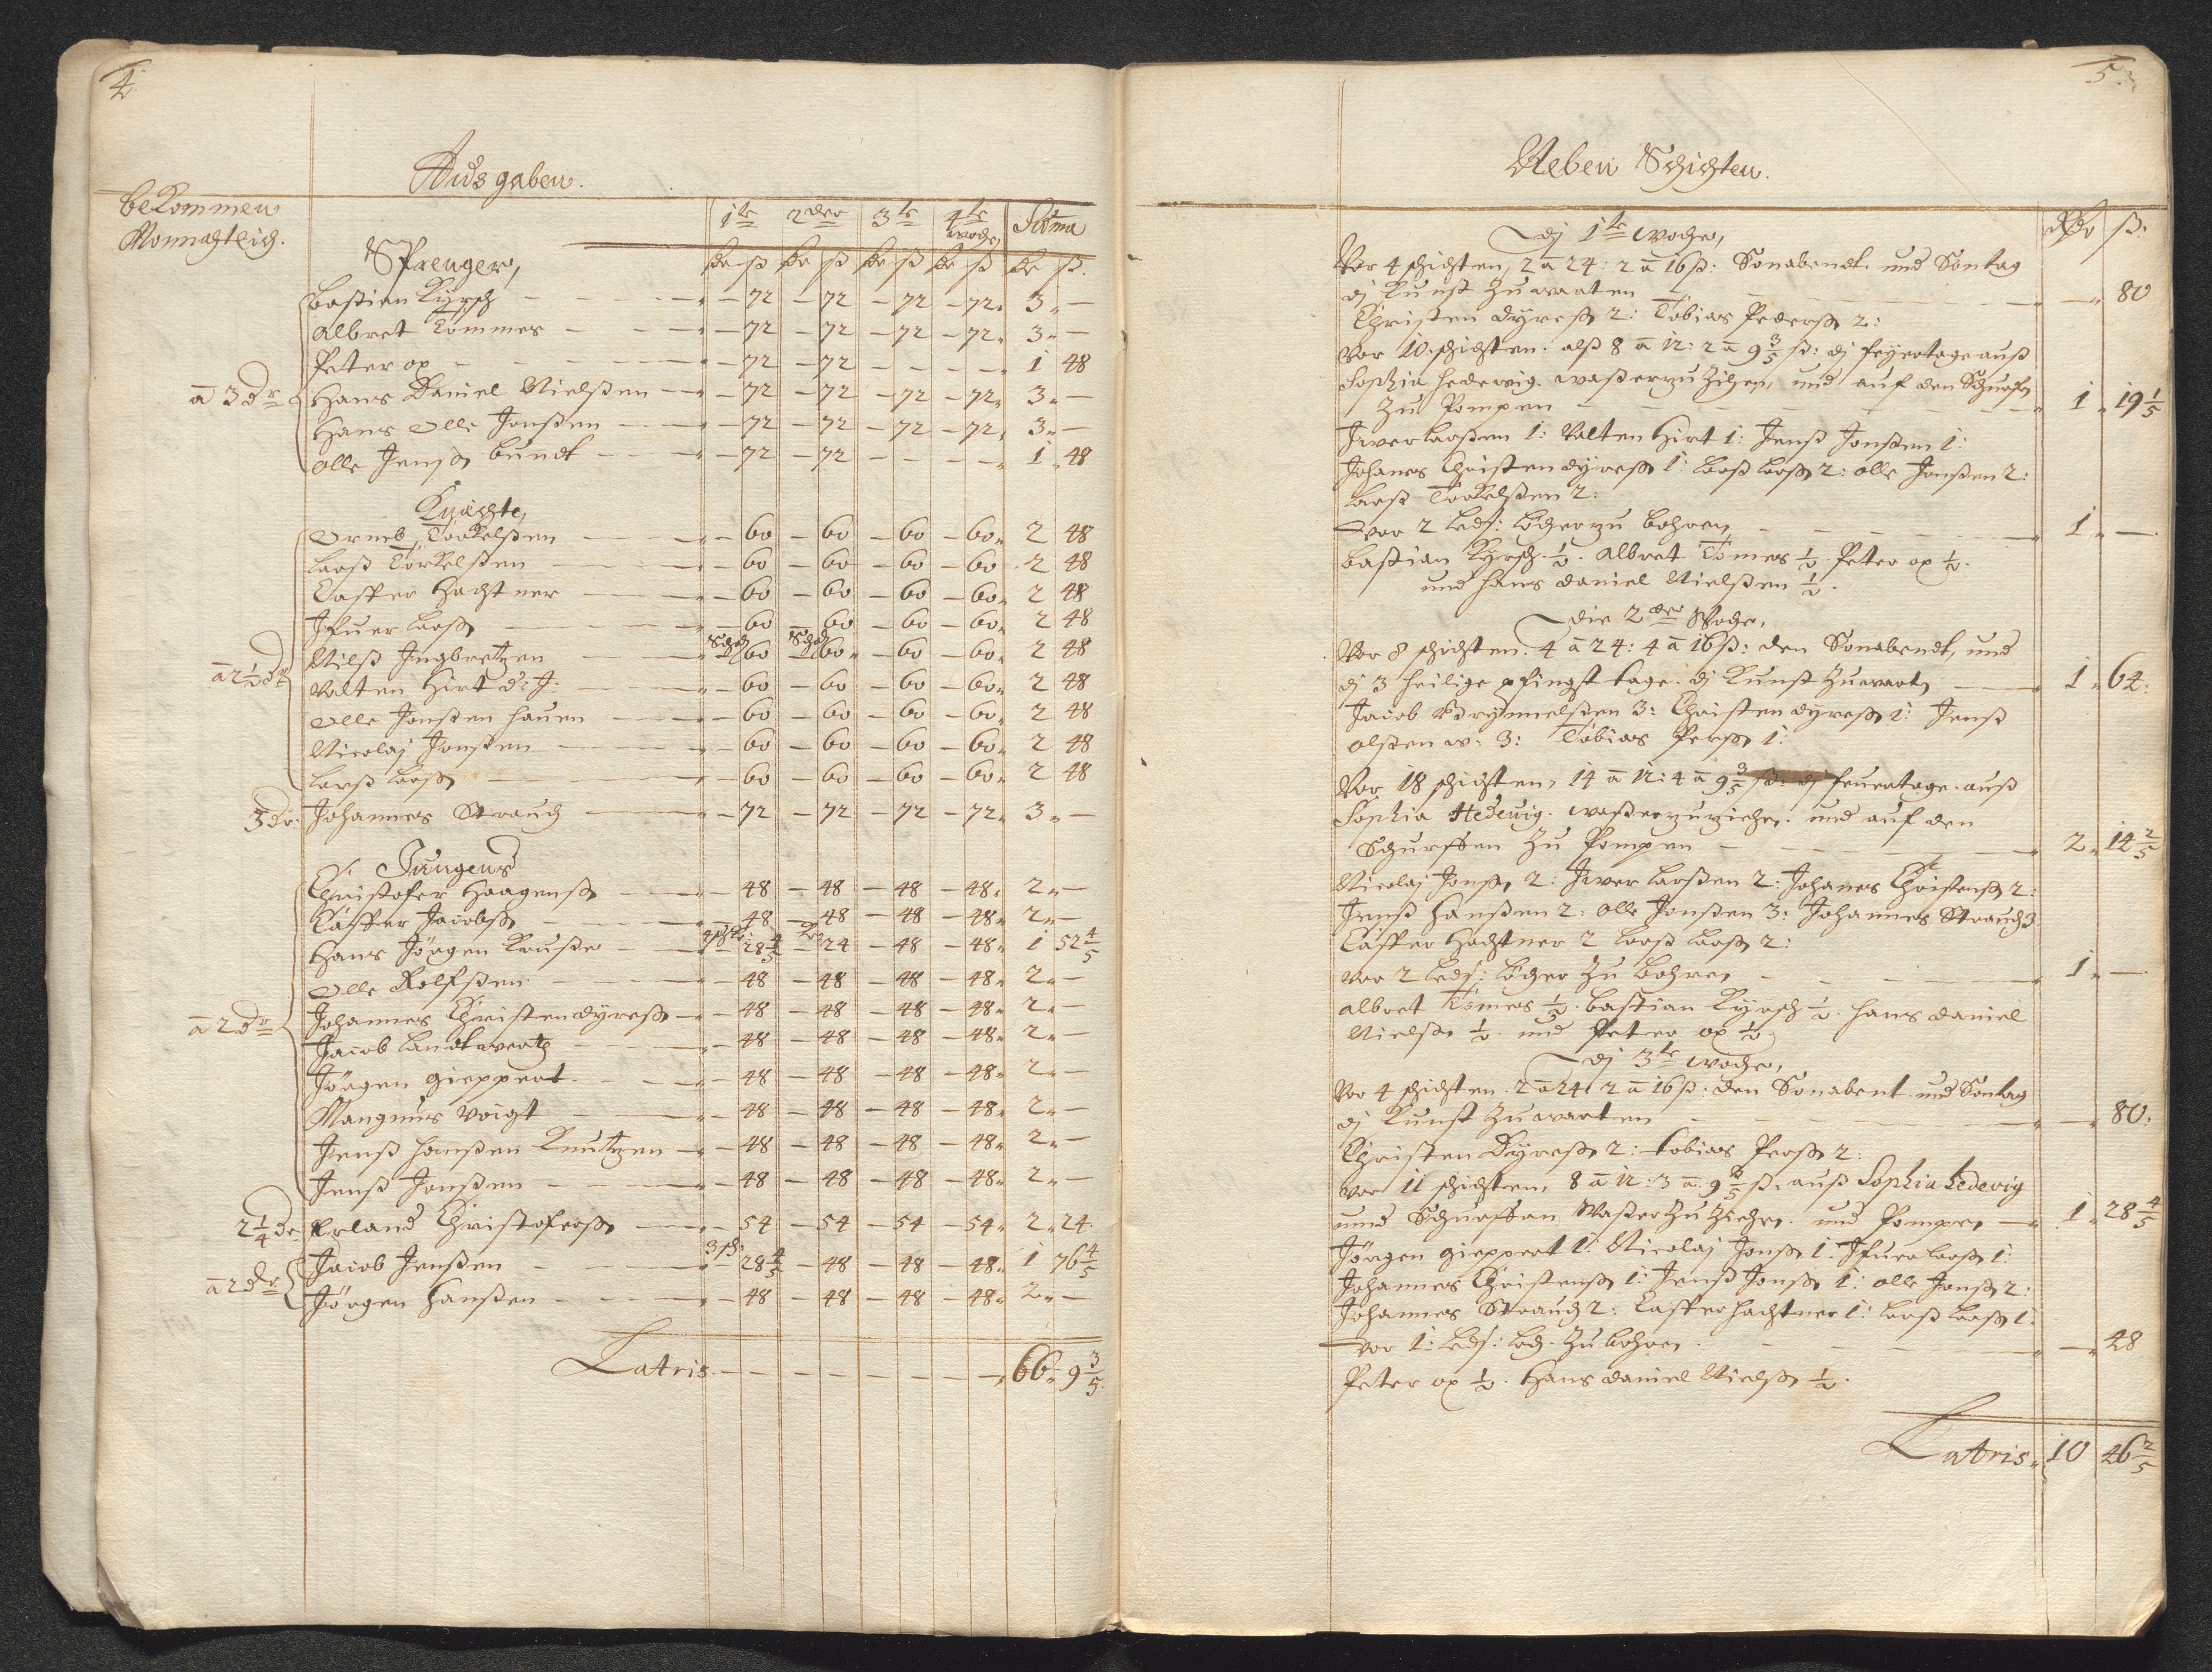 4.
Ausgaben.
bekommen
Monnachtlich.
1te 2der 3te 4te woche, Suma
Dr ß Dr ß Dr ß Dr ß Dr ß.
Sprenger,
Bastian Kyrsch — 72 — 72 — 72 — 72. 3. —
Albret Tommes — 72 — 72 — 72 — 72. 3. —
Peter ox — 72 — 72 — — — — 1 48
ā 3 dr Hans Daniel Nielßen — 72 — 72 — 72 — 72. 3. —
Hans Olle Jonßen — 72 — 72 — 72 — 72. 3. —
Olle Jenß bundt — 72 — 72 — — — — 1 48
Knächte,
Torkelßen — 60 — 60 — 60 — 60. 2 48
Larß Torkelßen — 60 — 60 — 60 — 60 2 48
Casper Hachtner — 60 — 60 — 60 — 60. 2 48
Ifuer Larß — 60 — 60 — 60 — 60. 2 48
Nilß Ingbretzen — 60 — 60 — 60 — 60. 2 48
ā 2 1/2 dr Valten Hirt d: J: — 60 — 60 — 60 — 60. 2 48
Olle Jonßen hauen — 60 — 60 — 60 — 60. 2 48
Nicolaj Jonßen — 60 — 60 — 60 — 60. 2 48
Larß Larß — 60 — 60 — 60 — 60. 2 48
3 dr. Johannes Strauch — 72 — 72 — 72 — 72. 3. —
Jungens
Christofer Haagenß — 48 — 48 — 48 — 48. 2. —
Casper Jacobß — 48 — 48 — 48 — 48. 2. —
Hans Jörgen Krußer — 28 4/5 — 24 — 48 — 48. 1 52 4/5
Olle Rolfßen — 48 — 48 — 48 — 48. 2. —
ā 2 dr Johannes Christendyreß — 48 — 48 — 48 — 48. 2. —
Jacob Landtwertz — 48 — 48 — 48 — 48. 2. —
Jörgen gieppert. — 48 — 48 — 48 — 48. 2. —
Mangnus Voigt — 48 — 48 — 48 — 48. 2. —
Jenß Hanßen Knutzen — 48 — 48 — 48 — 48. 2. —
Jenß Jonßen — 48 — 48 — 48 — 48. 2. —
2 1/4 dr Erland Christoferß — 54 — 54 — 54 — 54. 2. 24.
ā 2 dr Jacob Jenßen — 28 4/5 — 48 — 48 — 48. 1 76 4/5
Jörgen Hanßen — 48 — 48 — 48 — 48. 2. —
Latris. — 66. 9 3/5.
5.
Neben Schichten.
Rdr ß.
Dj 1te woche,
Vor 4 schichten, 2 ā 24: 2 ā 16 ß: Sonabendt. und Sontag
dj Kunst Zuwarten — 80
Christen dyreß 2: Tobias Pederß 2:
Vor 10. schichten. alß 8 ā 12: 2 ā 9 3/5 ß: dj feyertage auß
Sophia Hedewig. waßerzu Zihen, und auf den Schurfen
Zu Pompen — 1. 19 1/5
Iwerlarßen 1: Valten Hirt 1: Jenß Jonßen 1:
Johanes Christendyreß 1: Larß Larß 2: Olle Jonßen 2:
Larß Torkelßen 2:
vor 2 Locherzu bohren — 1. —
Bastian Kyrsch. 1/2. Albret Tomes 1/2. Peter ox 1/2.
und Hans Daniel Nielßen 1/2.
Die 2der Woche,
Vor 8 schichten. 4 ā 24: 4 ā 16 ß: den Sonabendt, und
dj 3 heilige pfingst tage. dj Kunst Zuwarten — 1. 64:
Jacob Brynnelßen 3: Christendyreß 1: Jenß
Olßen 3: Tobias Perß 1:
Vor 18 schichten, 14 ā 12: 4 ā 9 3/5 ß: dj feuertage. auß
Sophia Hedewig. waßerzuziehen. und auf den
Schurffen Zu Pompen — 2. 14 2/5
Nicolaj Jonß 2: Iwer Larßen 2: Johanes Christenß 2:
Jenß Hanßen 2: Olle Jonßen 3: Johannes Strauch 3
Casper Hachtner 2 Larß Larß 2:
vor 2 Löcher Zu Bohren — 1. —
Albret Tomes 1/2. Bastian Kyrsch 1/2. Hans Daniel
Nielß 1/2. und Peter ox 1/2.
Dj 3te woche,
Vor 4 schichten. 2 ā 24. 2 ā 16 ß. den Sonabent. und Sontag
dj Kunst Zuwarten — 80:
Christen Dyreß 2: Tobias Perß 2:
vor 11 schichten, 8 ā 12: 3 ā 9 3/5 ß. auß Sophia Hedevig
unnd Schurffen Waßer Zu Ziehen. und Pompen — 1. 28 4/5
Jörgen gieppert 1: Nicolaj Jonß 1: Ifuerlarß 1:
Johannes Christenß 1: Jenß Jonß 1: Olle Jonß 2:
Johannes Strauch 2: Casper Hachtner 1: Larß Larß 1:
vor 1: Loch Zu bohren. — 48
Peter ox 1/2. Hans Daniel Nielß 1/2.
Latris. 10 46 2/5